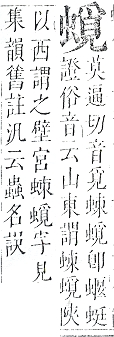 蟯英逼切音覓蝀蟯卽蝘蜓
證俗音云山東謂蝀蟯陝
以西謂之壁宮蝀蟯字見
集韻舊註汎云蟲名誤